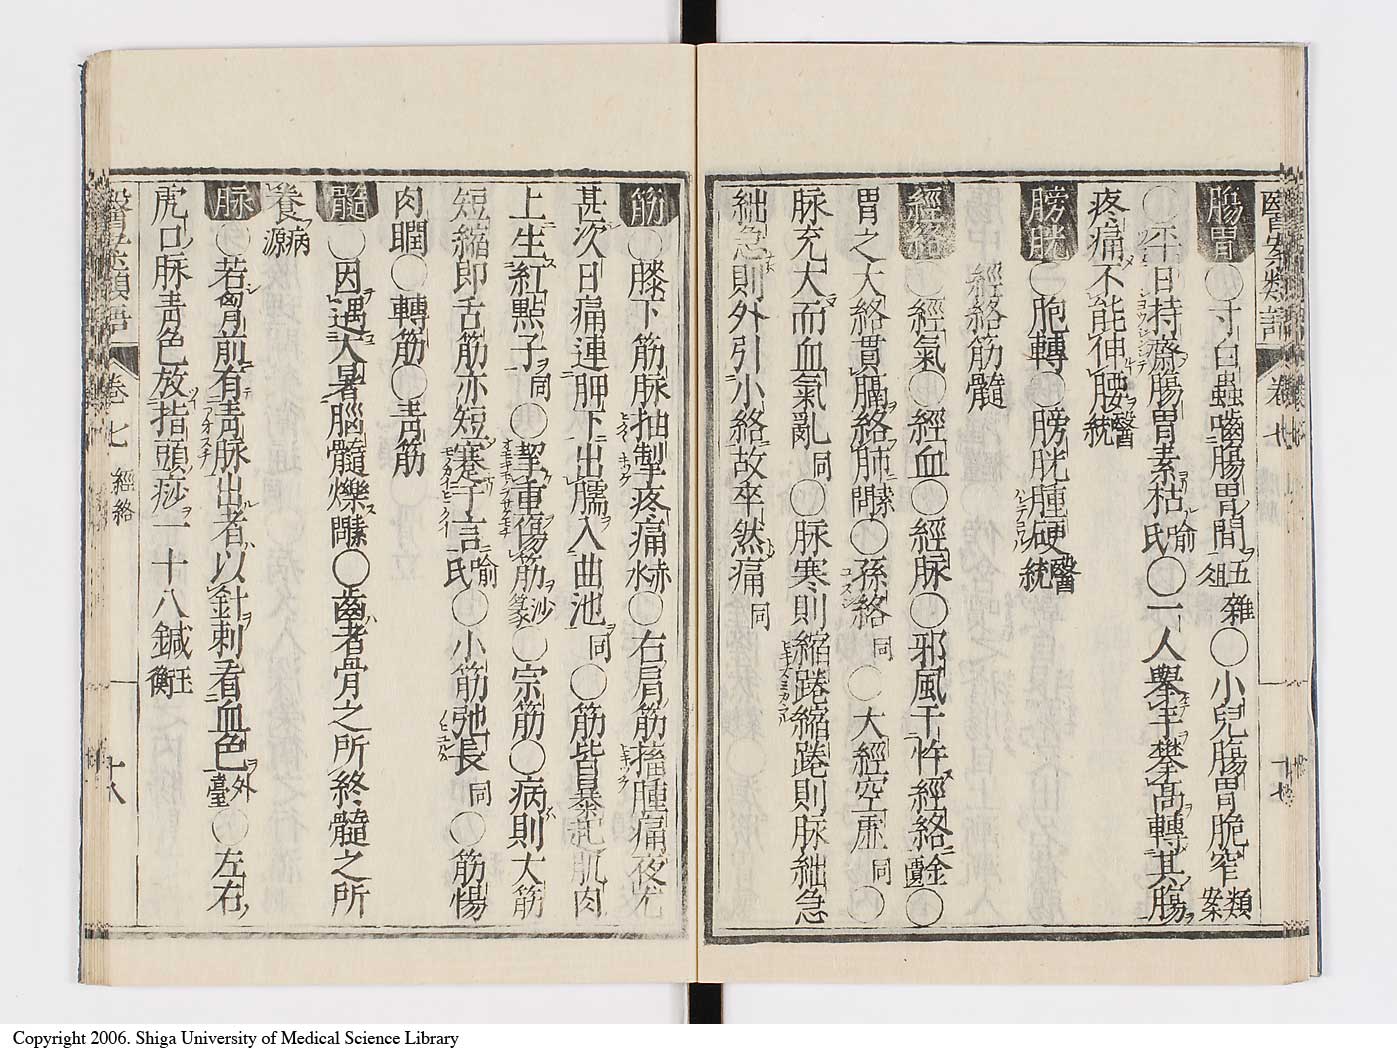 醫案類語
卷七
十七
腸胃 ○寸白蟲嚙腸胃間五雜俎○小兒腸胃脆窄類案
○平日持齋腸胃素枯喻氏○一人舉手攀高轉其腸
疼痛不能伸腰醫統
膀胱 ○胞轉○膀胱腫硬醫統
經絡筋髓
經絡 ○經氣○經血○經脉○邪風干忤經絡金匱○
胃之大絡貫膈絡肺素問○孫絡同○大經空虛同○
脉充大而血氣亂同○脉寒則縮踡縮踡則脉絀急
絀急則外引小絡故卒然痛同
筋 ○膝下筋脉抽掣疼痛赤水○右肩筋搐腫痛夜尤
甚次日痛連胛下出臑入曲池同○筋皆暴起肌肉
上生紅點子同○挈重傷筋沙篆○宗筋○病則大筋
短縮即舌筋亦短蹇于言喻氏○小筋弛長同○筋惕
肉瞤○轉筋○青筋
髓 ○因遇大暑腦髓爍素問○齒者骨之所終髓之所
養病源
脉 ○若胷前有青脉出者以針刺看血色外臺○左右
虎口脉青色放指頭痧一十八鍼玉衡
醫案類語
卷七
經絡
十八
Copyright 2006. Shiga University of Medical Science Library